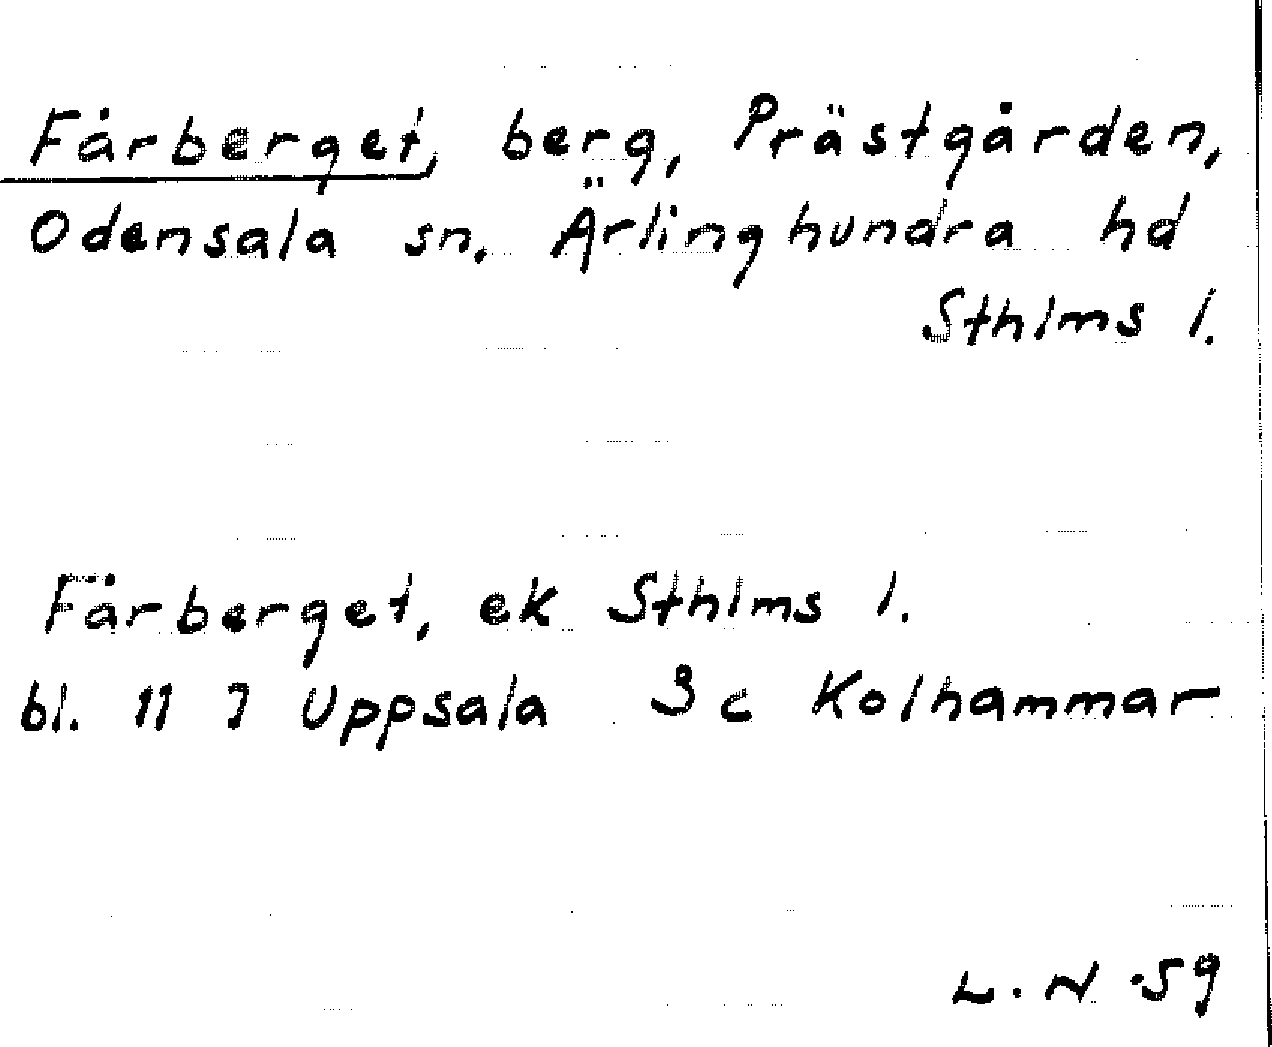 Fårberget, berg, Prästgården,
Odensala sn. Ärlinghundra hd
Sthlms l.
Fårberget, ek Sthlms l.
bl. 11 I Uppsala 3c Kolhammar
L. N -59